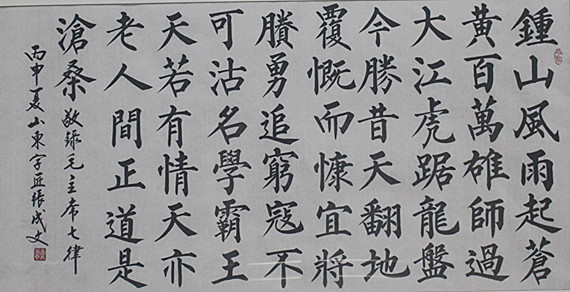 鍾山風雨起蒼
黃百萬雄師過
大江虎踞龍盤
今勝昔天翻地
覆慨而慷宜將
賸勇追窮寇不
可沽名學霸王
天若有情天亦
老人間正道是
滄桑 敬錄毛主席七律
丙申夏山東字匠張成文